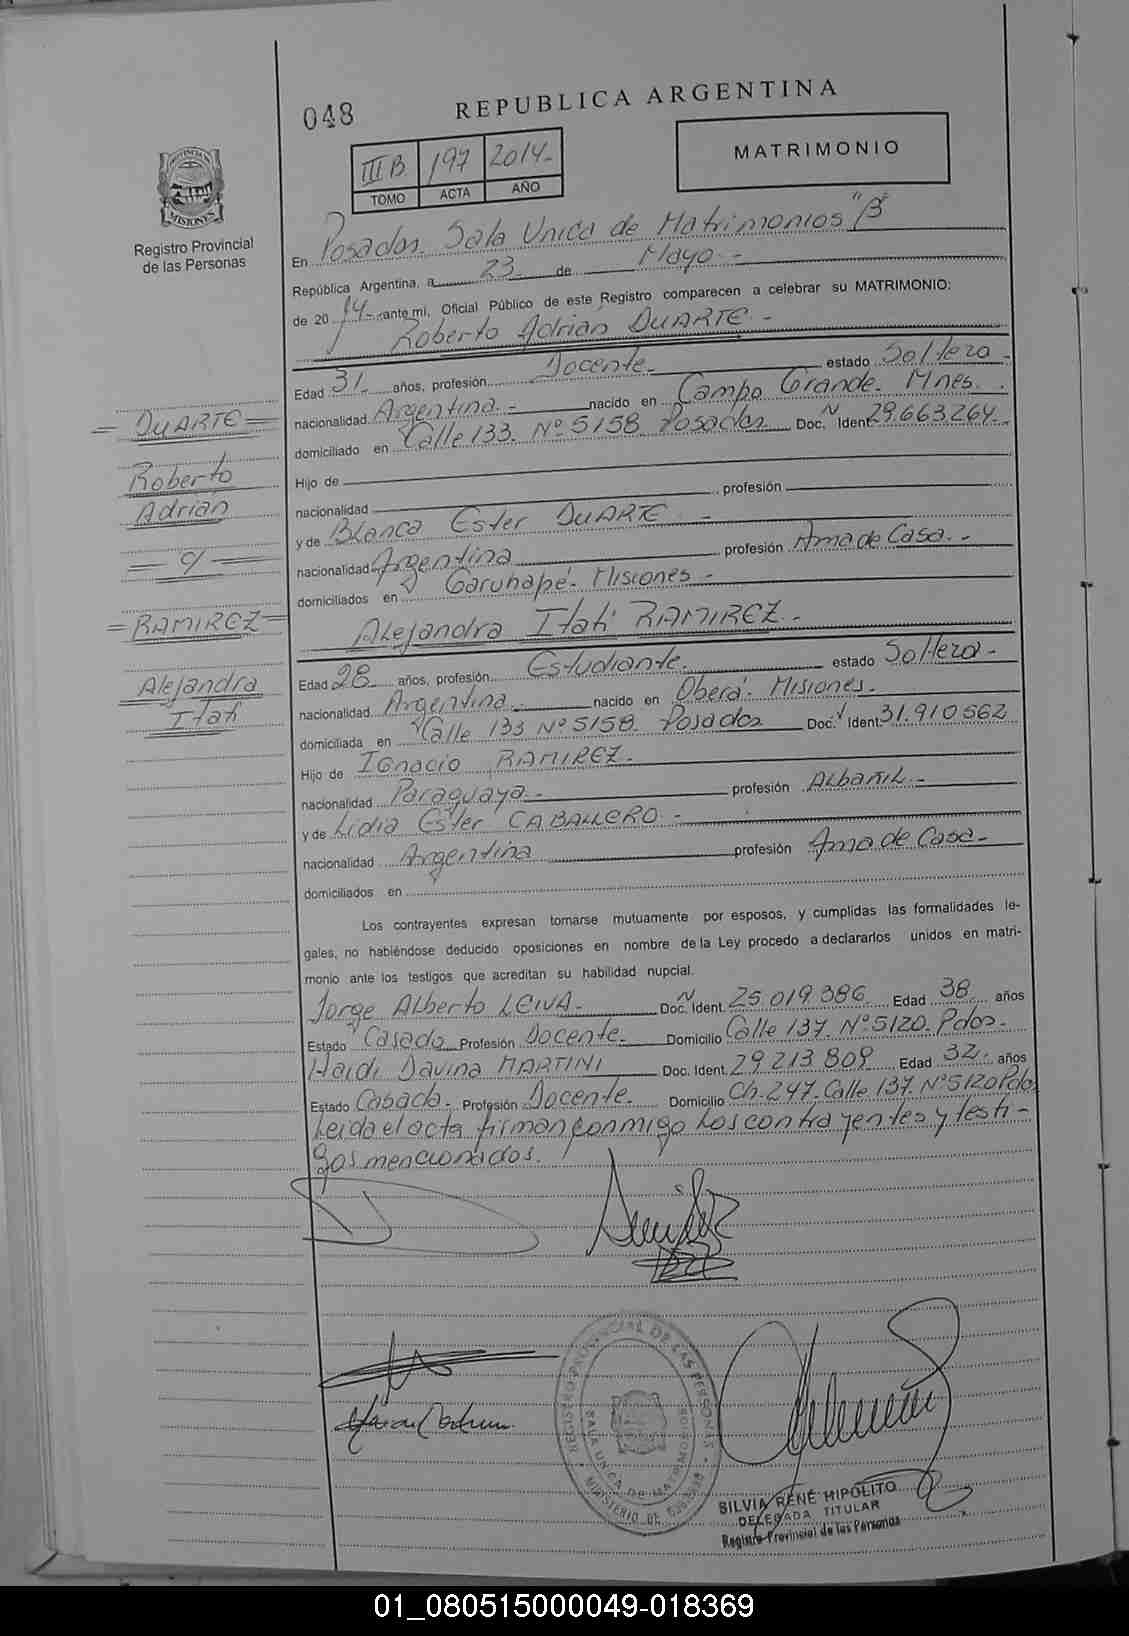 048
REPUBLICA ARGENTINA
PROVINCIA DE
MISIONES
Registro Provincial
de las Personas
III B. 197 2014-
TOMO ACTA AÑO
MATRIMONIO
En Posadas. Sala Unica de Matrimonios "B"
República Argentina, a 23 de Mayo -
de 20 14 ante mi, Oficial Público de este Registro comparecen a celebrar su MATRIMONIO:
Roberto Adrián DUARTE -
Edad 31 años, profesión Docente estado Soltero -
nacionalidad Argentina - nacido en Campo Grande. Mnes.
domiciliado en Calle 133. Nº 5158 Posadas Doc. N Ident 29.663.264
Hijo de
nacionalidad profesión
y de Blanca Ester DUARTE -
nacionalidad Argentina profesión Ama de Casa -
domiciliados en Garuhapé - Misiones -
Alejandra Itatí RAMIREZ -
Edad 28 años, profesión Estudiante estado Soltera -
nacionalidad Argentina nacido en Oberá. Misiones.
domiciliada en Calle 133 Nº 5158. Posadas Doc. Ident. 31.910562
Hijo de Ignacio RAMIREZ.
nacionalidad Paraguaya - profesión Albañil -
y de Lidia Ester CABALLERO -
nacionalidad Argentina profesión Ama de Casa -
domiciliados en
Los contrayentes expresan tomarse mutuamente por esposos, y cumplidas las formalidades le-
gales, no habiéndose deducido oposiciones en nombre de la Ley procedo a declararlos unidos en matri-
monio ante los testigos que acreditan su habilidad nupcial.
Jorge Alberto LEIVA - Doc. N Ident. 25.019.386 Edad 38 años
Estado Casado Profesión Docente Domicilio Calle 137. Nº 5120. Pdas.
Haidi Davina MARTINI Doc. Ident. 29.213.809 Edad 32 años
Estado Casada - Profesión Docente. Domicilio Ch. 247. Calle 137. Nº 5120 Pdas
Leida el acta firman conmigo los contrayentes y testi-
gos mencionados.
= DUARTE =
Roberto
Adrián
= y =
= RAMIREZ =
Alejandra
Itatí
REGISTRO PROVINCIAL DE LAS PERSONAS
SALA UNICA DE MATRIMONIOS
MINISTERIO DE GOBIERNO
SILVIA RENÉ HIPÓLITO
DELEGADA TITULAR
Registro Provincial de las Personas
01_080515000049-018369